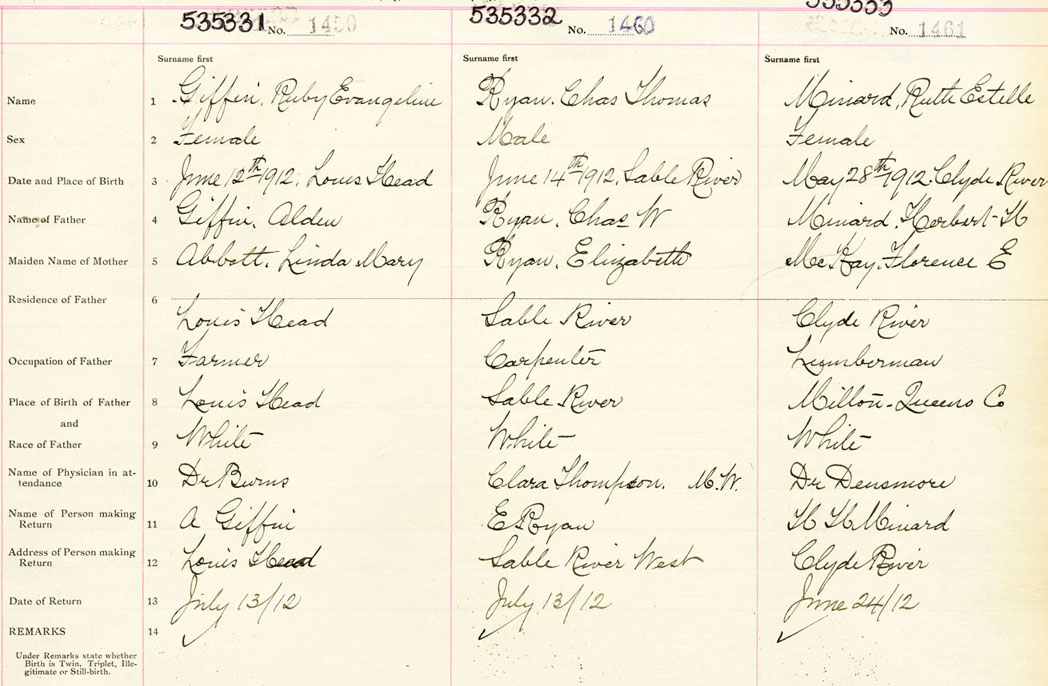 535331 No. 1459 535332 No. 1460 535333 No. 1461
Surname first Surname first Surname first
Name 1 Giffin, Ruby Evangeline Ryan, Chas Thomas Minard, Ruth Estelle
Sex 2 Female Male Female
Date and Place of Birth 3 June 12th 1912. Louis Head June 14th 1912. Sable River May 28th 1912. Clyde River
Name of Father 4 Giffin, Alden Ryan, Chas W Minard, Herbert H
Maiden Name of Mother 5 Abbott, Linda Mary Ryan, Elizabeth McKay, Florence E
Residence of Father 6 Louis Head Sable River Clyde River
Occupation of Father 7 Farmer Carpenter Lumberman
Place of Birth of Father 8 Louis Head Sable River Milton - Queens Co
and
Race of Father 9 White White White
Name of Physician in at-
tendance 10 Dr Burns Clara Thompson. M.W. Dr Densmore
Name of Person making
Return 11 A Giffin E Ryan H H Minard
Address of Person making
Return 12 Louis Head Sable River West Clyde River
Date of Return 13 July 13/12 July 13/12 June 24/12
REMARKS 14
Under Remarks state whether
Birth is Twin, Triplet, Ille-
gitimate or Still-birth.